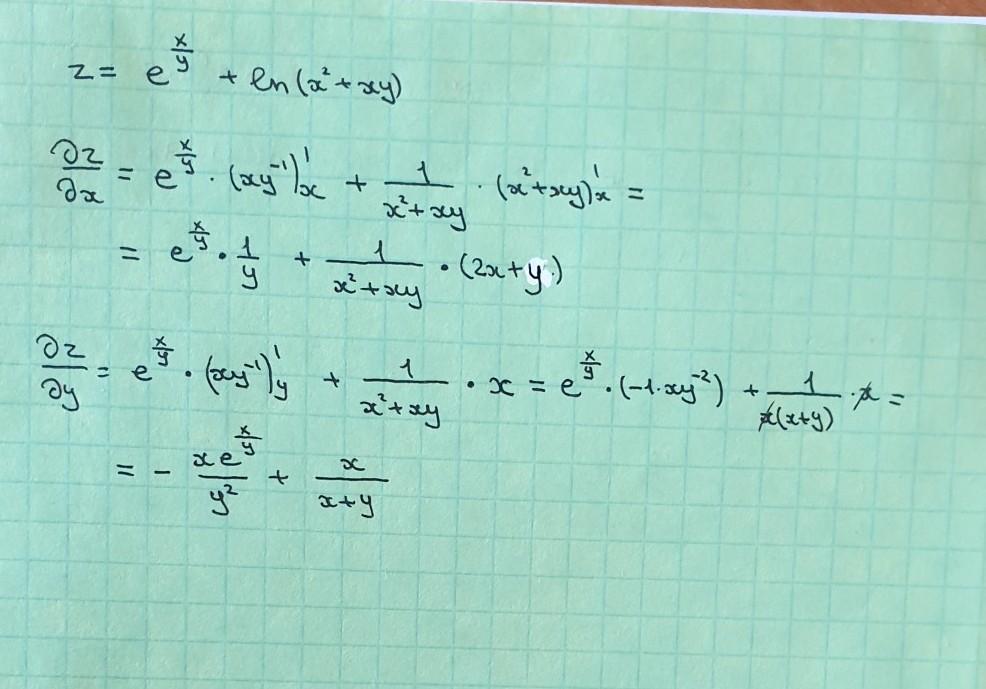 z = e^{x/y} + ln(x² + xy)
∂z/∂x = e^{x/y} · (xy⁻¹)'ₓ + 1/(x² + xy) · (x² + xy)'ₓ =
= e^{x/y} · 1/y + 1/(x² + xy) · (2x + y)
∂z/∂y = e^{x/y} · (xy⁻¹)'_y + 1/(x² + xy) · x = e^{x/y} · (-1·xy⁻²) + 1/(x(x+y)) · x =
= - xe^{x/y}/y² + x/(x+y)